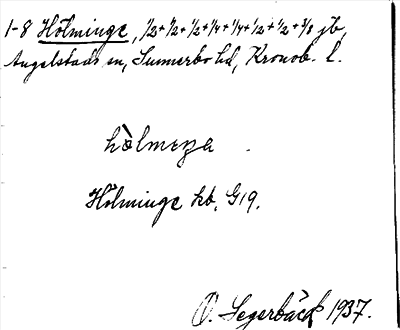 1-8 Hölminge, 1/2+1/2+1/2+1/4+1/4+1/2+1/2+3/8 jb,
Angelstads sn, Sunnerbo hd, Kronob. l.
Hölminge kb, G19.
O. Segerbäck 1937.